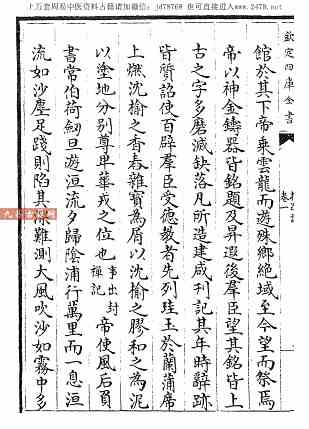 上万套周易中医资料古籍请加微信:jd78768 也可直接进入www.2478.net
欽定四庫全書
卷一
館於其下帝乘雲龍而遊殊鄉絶域至今望而祭焉
帝以神金鑄器皆銘題及昇遐後羣臣望其銘皆上
古之字多磨滅缺落凡所造建咸刋記其年時辭跡
皆質詔使百辟羣臣受德教者先列珪玉於蘭蒲席
上燃沈榆之香舂雜寳為屑以沈榆之膠和之為泥
以塗地分别尊卑華戎之位也事出封禪記帝使風后負
書常伯荷劒旦遊洹流夕歸陰浦行萬里而一息洹
流如沙塵足踐則陷其深難測大風吹沙如霧中多